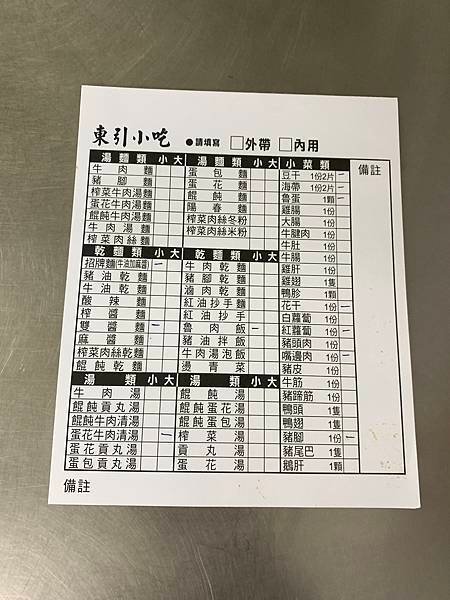 東引小吃 ●請填寫 □外帶 □內用
湯麵類 小 大 湯麵類 小 大 小菜類 備註
牛肉麵 蛋包麵 豆干 1份2片
豬腳麵 蛋花麵 海帶 1份2片
榨菜牛肉湯麵 餛飩麵 魯蛋 1顆
蛋花牛肉湯麵 陽春麵 雞腸 1份
餛飩牛肉湯麵 榨菜肉絲冬粉 大腸 1份
牛肉湯麵 榨菜肉絲米粉 牛腱肉 1份
榨菜肉絲麵 牛肚 1份
乾麵類 小 大 乾麵類 小 大 牛腸 1份
招牌麵(牛油加麻醬) 牛肉乾麵 雞肝 1份
豬油乾麵 豬腳乾麵 雞翅 1隻
牛油乾麵 滷肉乾麵 鴨胗 1顆
酸辣麵 紅油抄手麵 花干 1份
榨醬麵 紅油抄手 白蘿蔔 1份
雙醬麵 魯肉飯 紅蘿蔔 1份
麻醬麵 豬油拌飯 豬頭肉 1份
榨菜肉絲乾麵 牛肉湯泡飯 嘴邊肉 1份
餛飩乾麵 燙青菜 豬皮 1份
湯類 小 大 湯類 小 大 牛筋 1份
牛肉湯 餛飩湯 豬蹄筋 1份
餛飩貢丸湯 餛飩蛋花湯 鴨頭 1隻
餛飩牛肉清湯 餛飩蛋包湯 鴨翅 1隻
蛋花牛肉清湯 榨菜湯 豬腳 1份
蛋花貢丸湯 貢丸湯 豬尾巴 1隻
蛋包貢丸湯 蛋花湯 鵝肝 1顆
備註